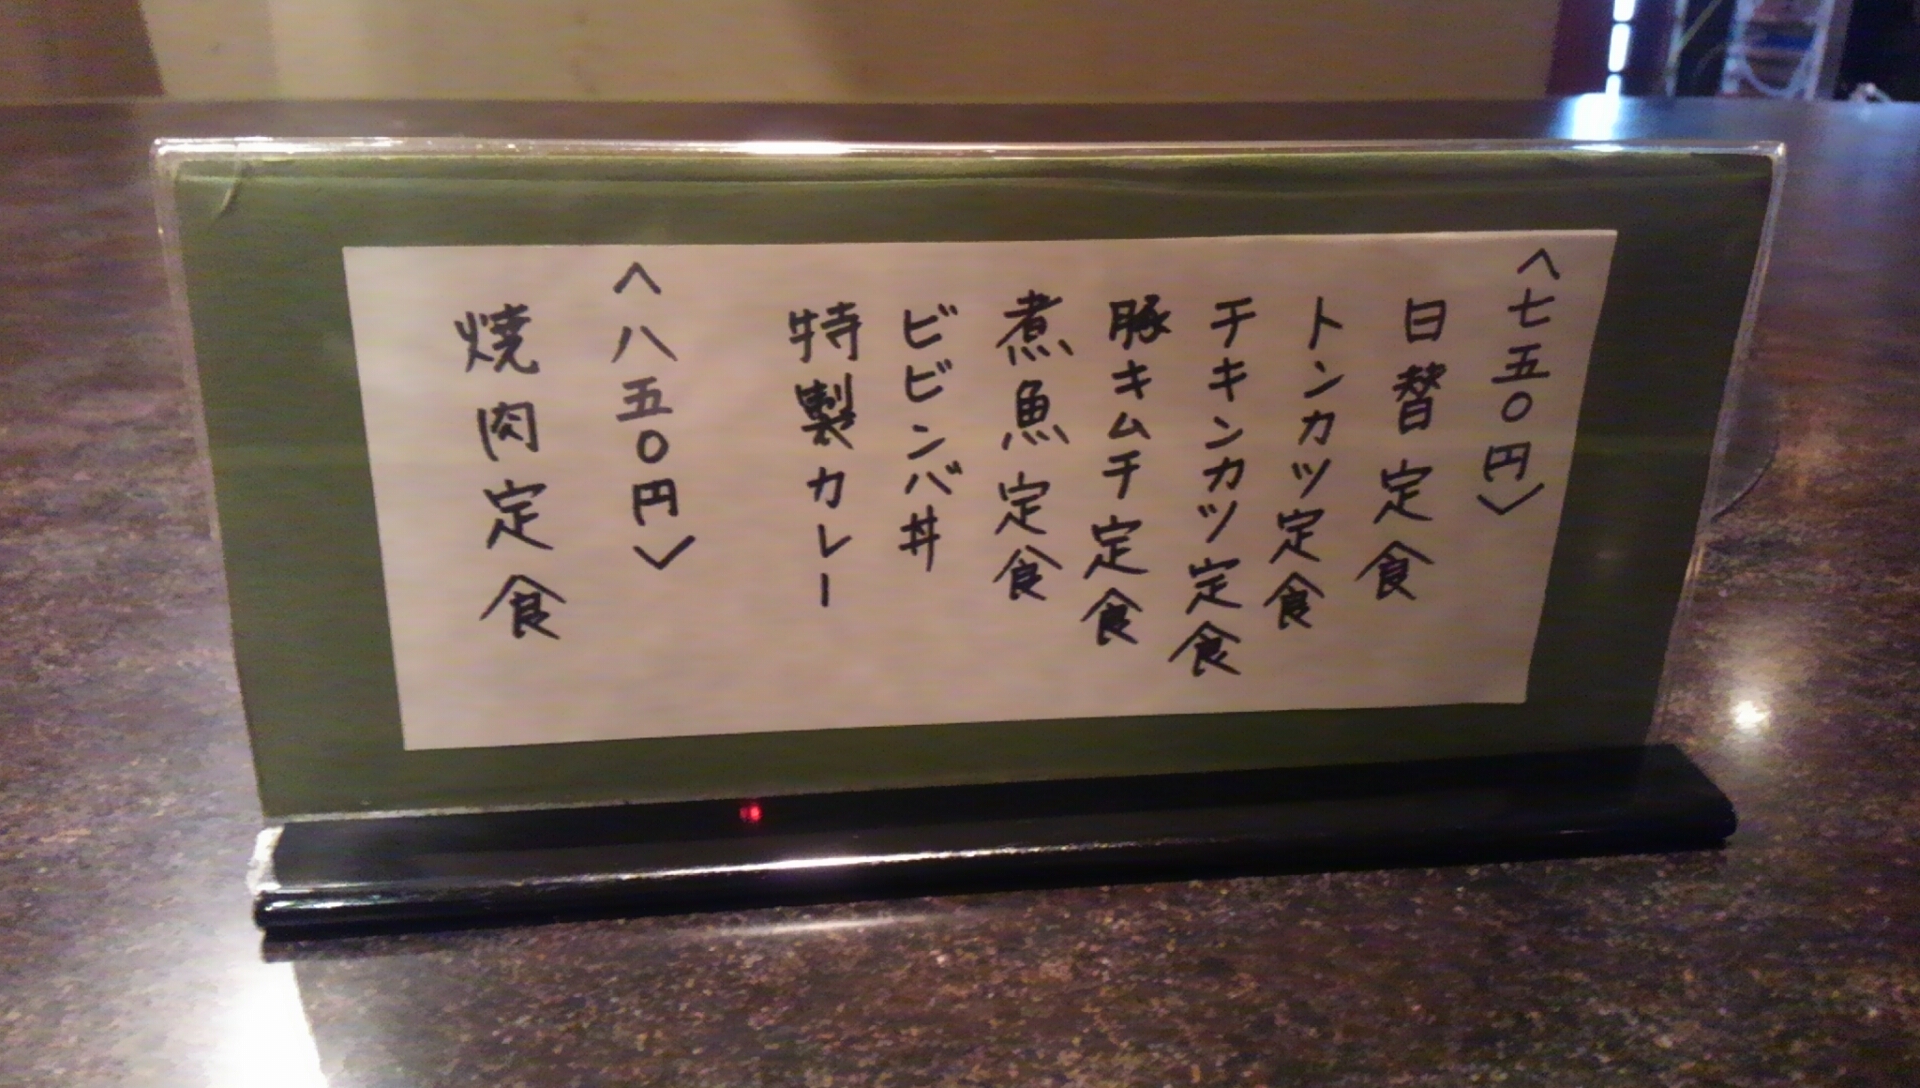 〈七五〇円〉
日替定食
トンカツ定食
チキンカツ定食
豚キムチ定食
煮魚定食
ビビンバ丼
特製カレー
〈八五〇円〉
焼肉定食